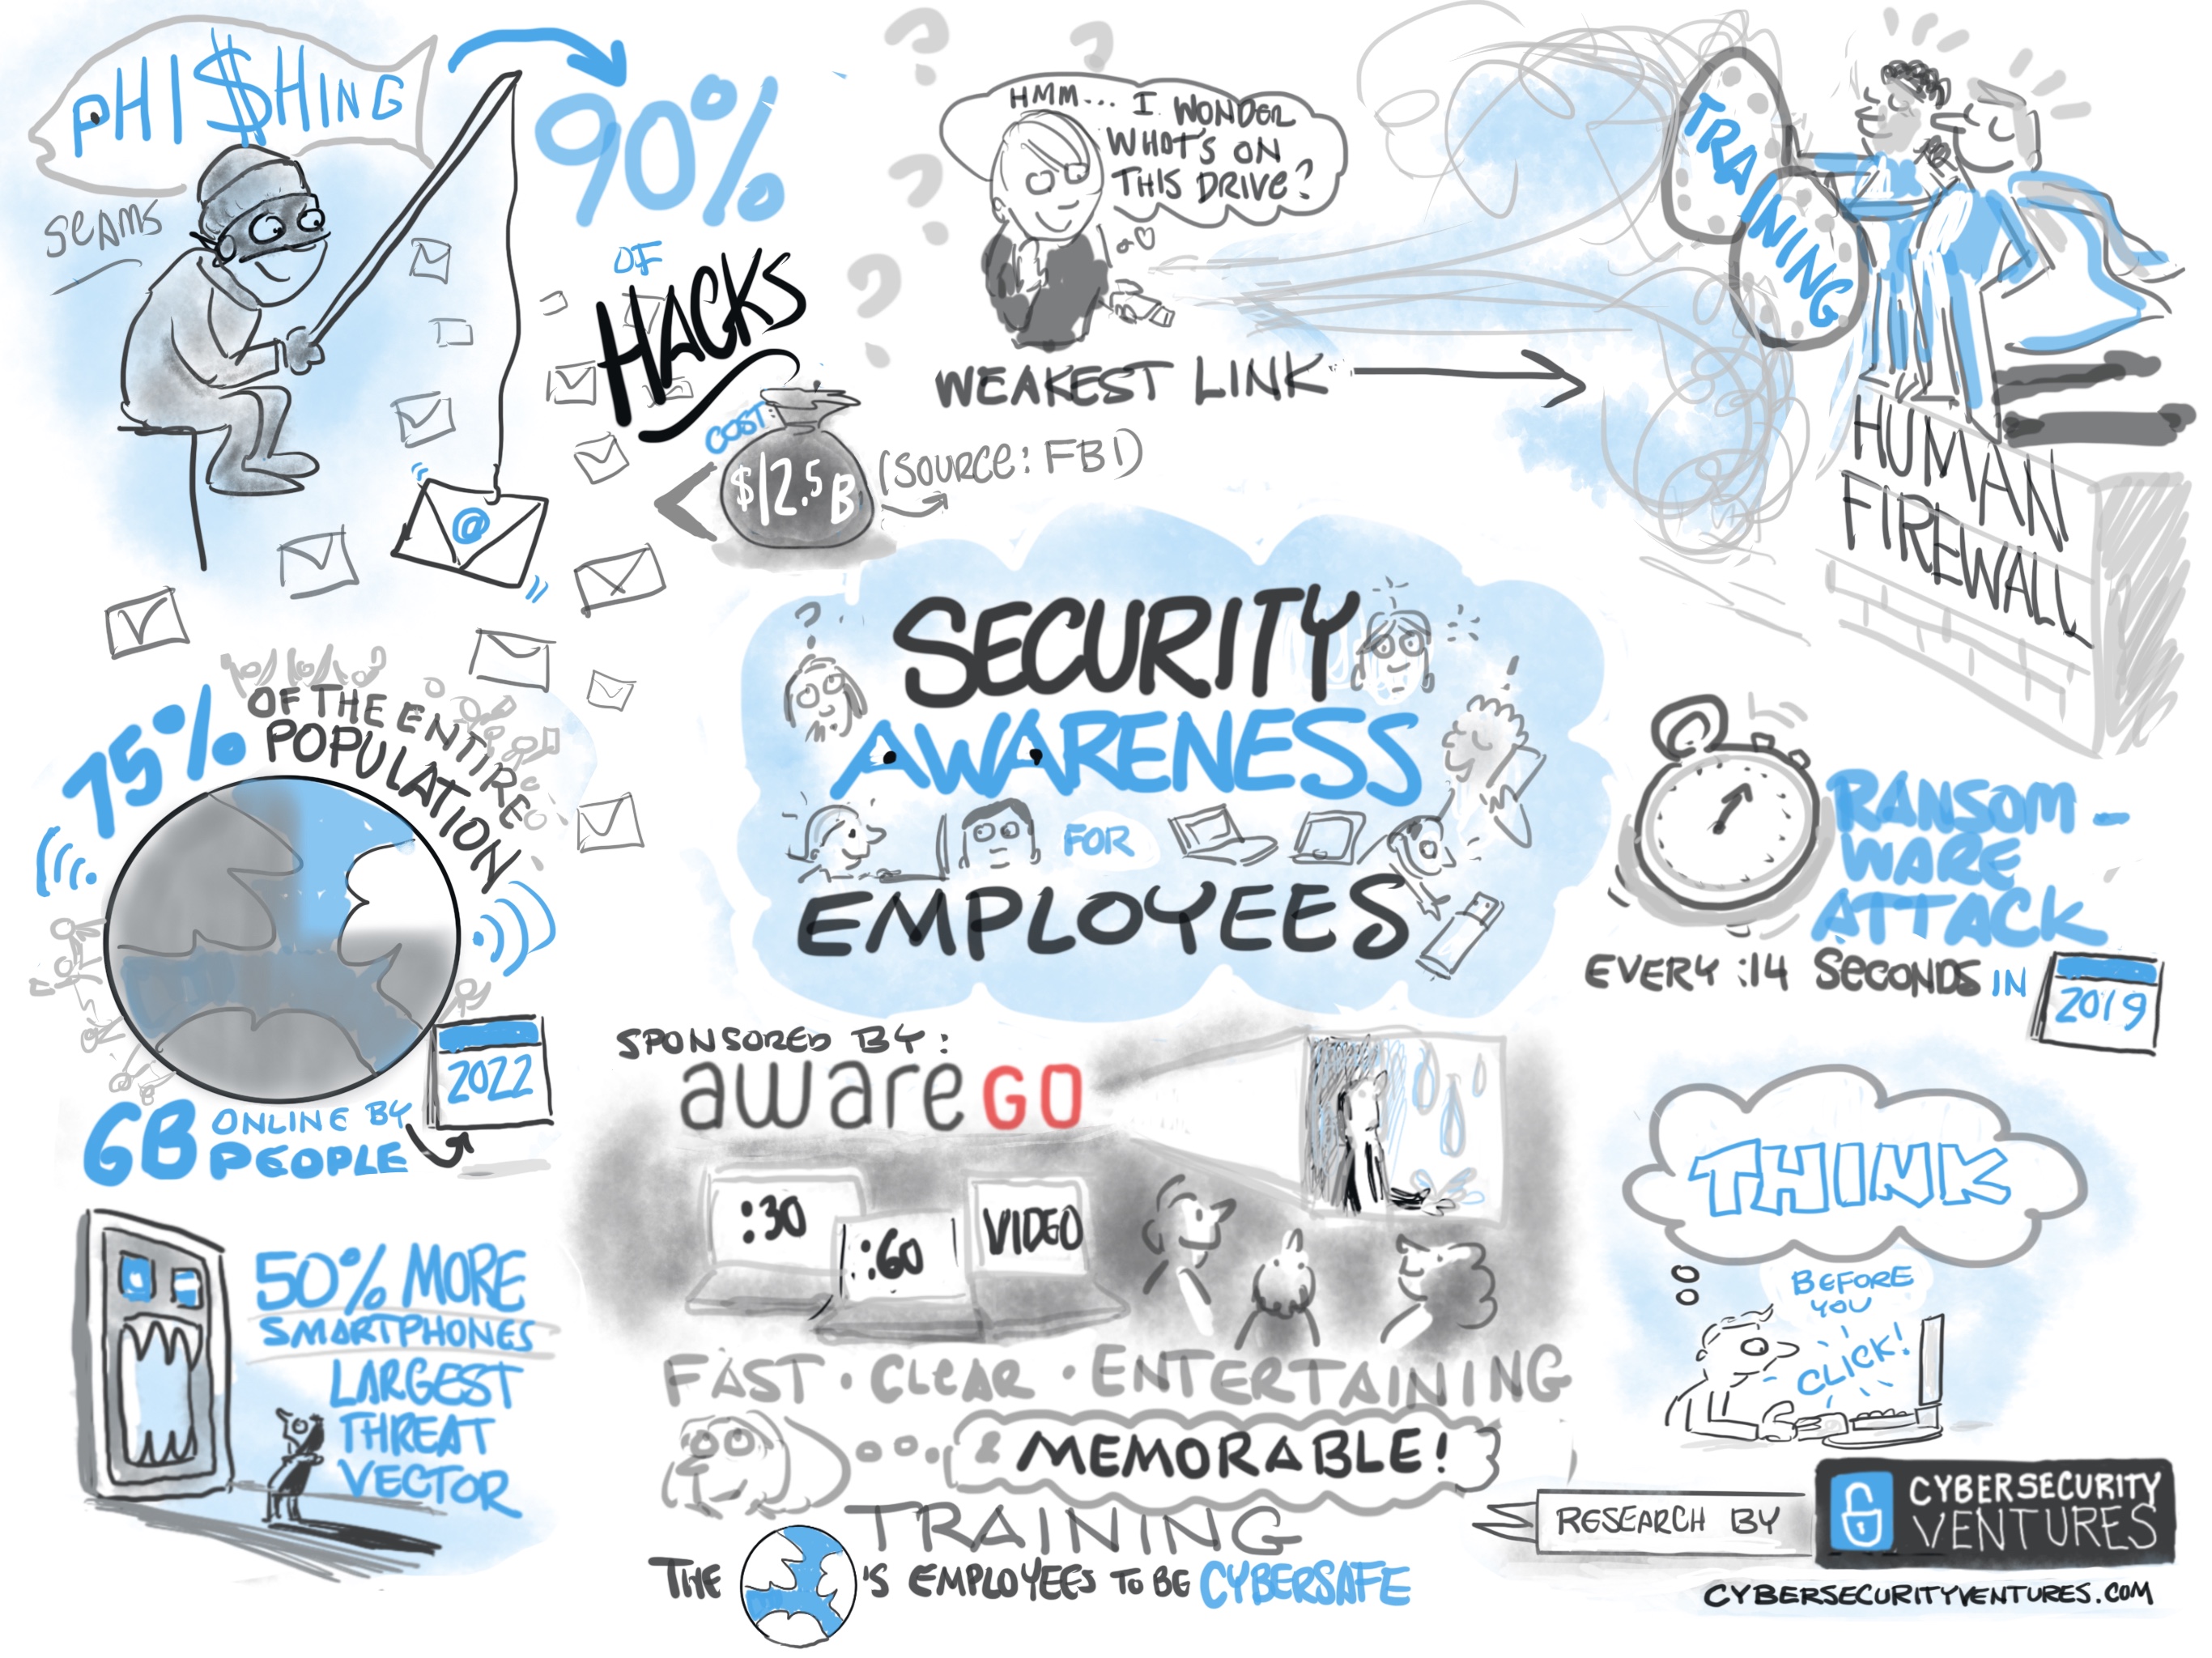 PHI$HING
SCAMS
90%
OF
HACKS
COST:
$12.5B
(SOURCE: FBI)
HMM... I WONDER
WHAT'S ON
THIS DRIVE?
WEAKEST LINK
TRAINING
HUMAN
FIREWALL
SECURITY
AWARENESS
FOR
EMPLOYEES
75% OF THE ENTIRE
POPULATION
6B ONLINE BY
PEOPLE
2022
RANSOM-
WARE
ATTACK
EVERY :14 SECONDS IN
2019
SPONSORED BY:
aware GO
:30
:60
VIDEO
FAST · CLEAR · ENTERTAINING
& MEMORABLE!
TRAINING
THE 'S EMPLOYEES TO BE CYBERSAFE
50% MORE
SMARTPHONES
LARGEST
THREAT
VECTOR
THINK
BEFORE
YOU
CLICK!
RESEARCH BY
CYBERSECURITY
VENTURES
CYBERSECURITYVENTURES.COM